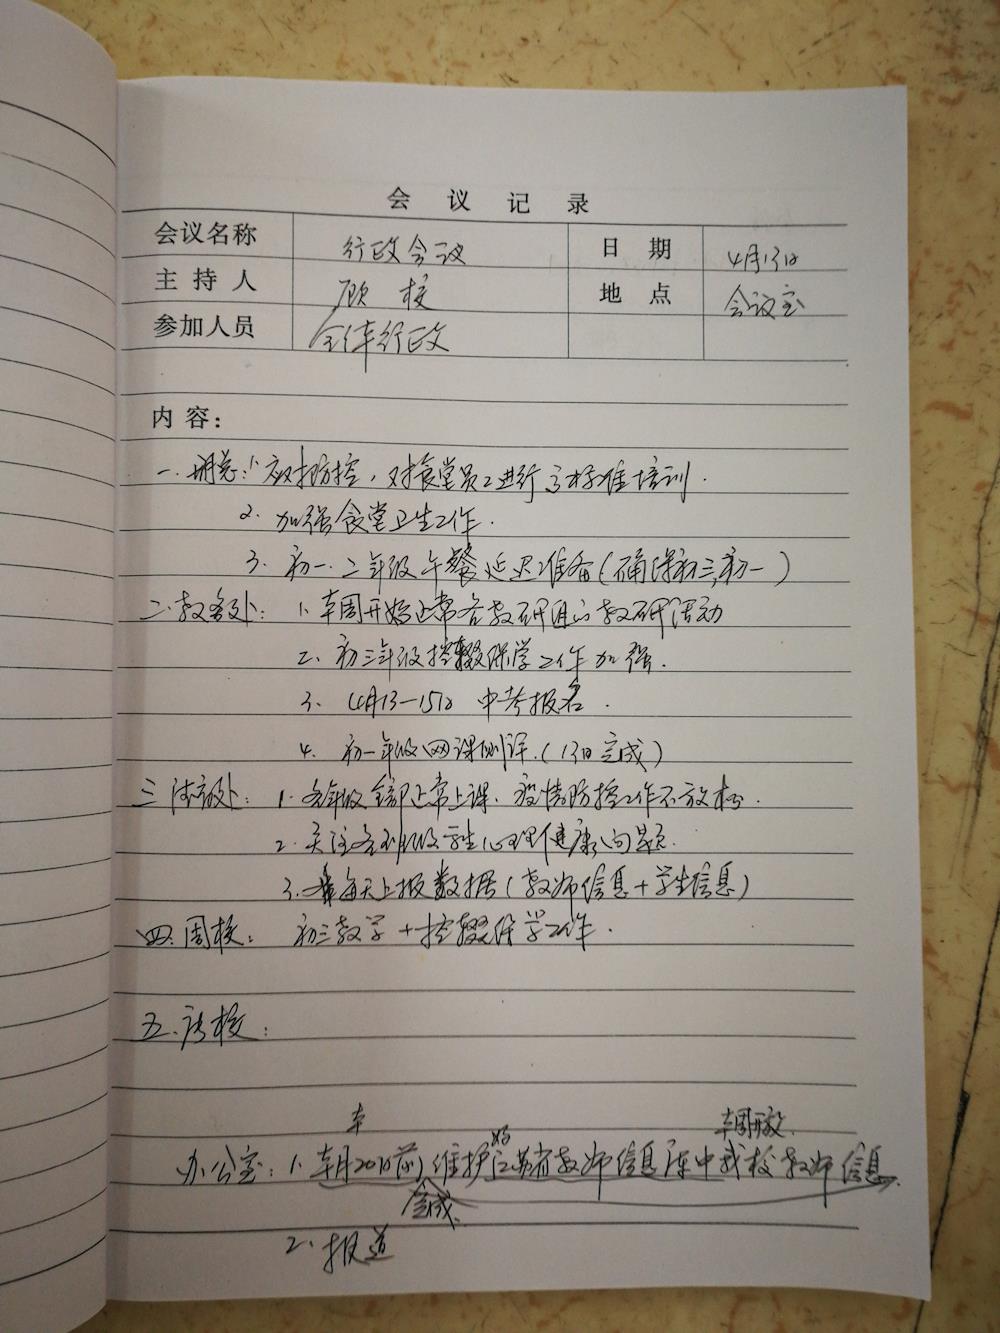 会议记录
会议名称 行政会议 日期 4月13日
主持人 顾校 地点 会议室
参加人员 全体行政
内容：
一.胡总：1.疫情防控，对食堂员工进行了标准培训.
2. 加强食堂卫生工作.
3. 初一.二年级午餐延迟准备(确保初三,初一)
二.教务处： 1.本周开始正常各教研组的教研活动
2. 初三年级控辍保学工作加强.
3. 4月13—15日 中考报名.
4. 初一年级网课测评.(13日完成)
三 德育处： 1.各年级全部正常上课.疫情防控工作不放松.
2.关注各班级学生心理健康问题.
3.每天上报数据(教师信息+学生信息)
四.周校： 初三教学+控辍保学工作.
五.
校：
本 好 本周开放.
办公室：1.本月20日前维护江苏省教师信息库中我校教师信息.
完成.
2.报道